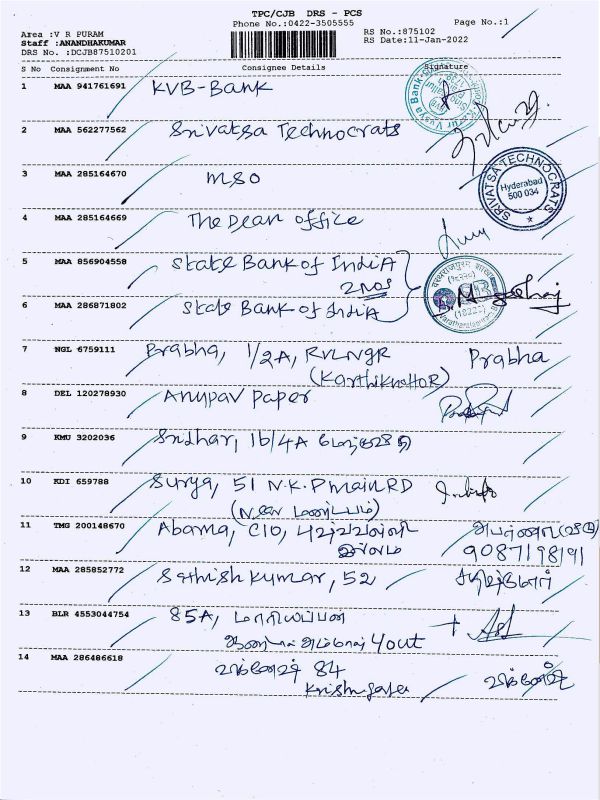 TPC/CJB DRS - PCS
Phone No.:0422-3505555
Page No.:1
Area :V R PURAM
Staff :ANANDHAKUMAR
DRS No. :DCJB87510201
RS No.:875102
RS Date:11-Jan-2022
S No Consignment No Consignee Details Signature
1 MAA 941761691 KVB-Bank
2 MAA 562277562 Srivatsa Technocrats
SRIVATSA TECHNOCRATS
Hyderabad
500 034
3 MAA 285164670 MSO
4 MAA 285164669 The Dean office
5 MAA 856904558 State Bank of India
2 Nos
6 MAA 286871802 State Bank of India
(18222)
7 NGL 6759111 Prabha, 1/2A, RVLNGR Prabha
8 DEL 120278930 Anupav Paper
9 KMU 3202036 Sridhar, 16/4A
10 KDI 659788 Surya, 51 N.K.P Main RD
(Near மண்டபம்)
11 TMG 200148670 Abarna, C10,
இல்லம் 9087198191
12 MAA 285852772 Sathish Kumar, 52
13 BLR 4553044754 85A, மாரியப்பன்
14 MAA 286486618 84